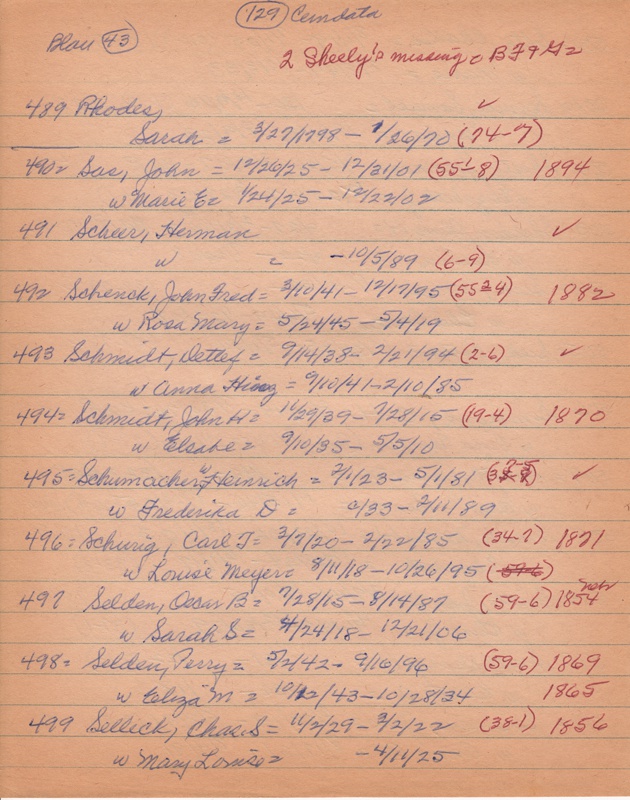 129 Cemdata
Blau 43
2 Sheely's missing BF &
489 Rhodes, ✓
Sarah = 3/27/1798 - 1/26/70 (74-7)
490= Sas, John = 12/26/25 - 12/31/01 (55-8) 1894
w Marie E = 1/24/25 - 12/22/02
491 Scheer, Herman ✓
w = -10/5/89 (6-9)
492 Schenck, John Fred = 3/10/41 - 12/17/95 (55 4) 1882
w Rosa Mary = 5/24/45 - 5/4/19
493 Schmidt, Detlef = 9/14/38 - 2/21/94 (2-6) ✓
w Anna = 9/10/41 - 2/10/85
494= Schmidt, John H = 11/29/39 - 7/28/15 (19-4) 1870
w Elsabe = 9/10/35 - 5/5/10
495= Schumacher, Heinrich = 2/1/23 - 5/1/81 ✓
w Frederika D = c/33 - 2/11/89
496= Schurig, Carl T = 3/7/20 - 2/22/85 (34-7) 1871
w Louise Meyer = 8/11/18 - 10/26/95 (59-6)
497 Selden, Oscar B = 7/28/15 - 8/14/87 (59-6) 1854
w Sarah S = 4/24/18 - 12/21/06
498= Selden, Perry = 5/2/42 - 9/16/96 (59-6) 1869
w Eliza M = 10/22/43 - 10/28/34 1865
499 Selleck, Chas. S = 11/2/29 - 3/2/22 (38-1) 1856
w Mary Louise = -4/11/25